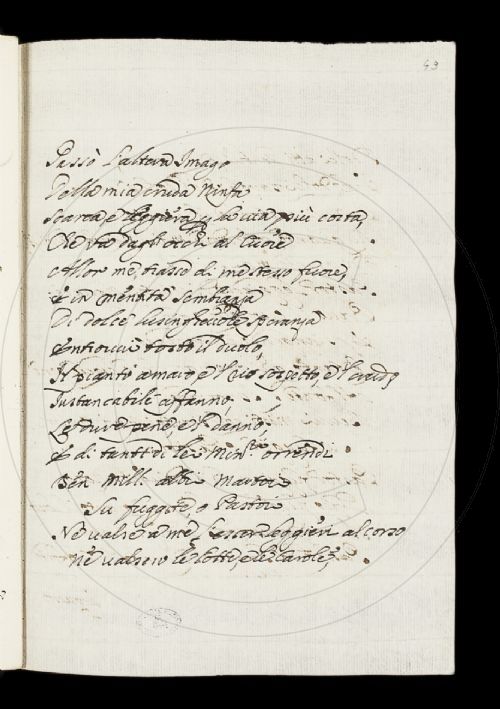 49
Passò l'altera Imago
Della mia cruda Ninfa
Scarca e leggiera la via più corta,
Che va dagli occhi al Cuore
Allor me trasse di me stesso fuore,
E in mentita sembianza
Di dolce lusinghevole speranza
Entrovvi tosto il duolo,
Il pianto amaro e'l rio sospetto, e'l
Instancabile affanno,
Le dure pene, e'l danno,
E di tanti di lei Min.ri orrendi
Ben mill' altri Martori
Su fuggite, o Pastori
Ne valse a me l'esser leggieri al corso
Ne valsero le lotte, e le Carole,